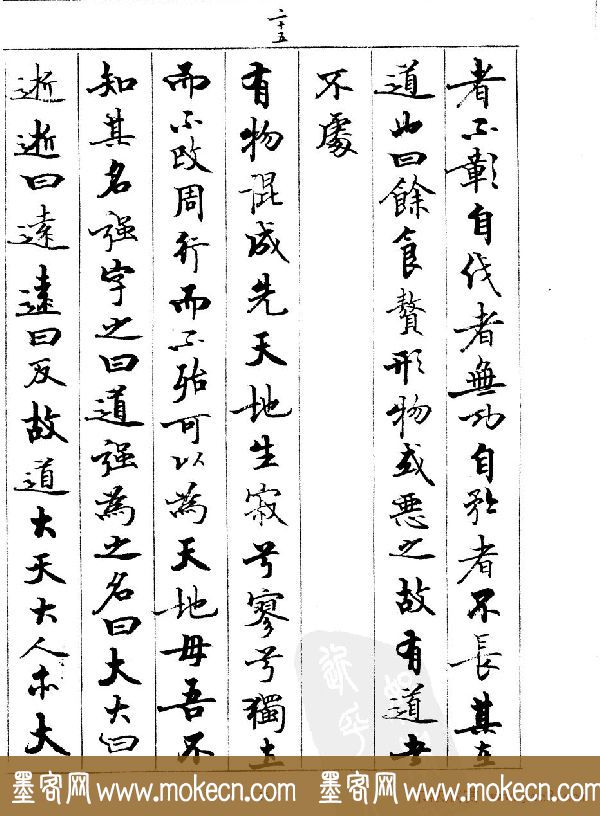 二十五
者不彰自伐者無功自矜者不長其在
道也曰餘食贅形物或惡之故有道者
不處
有物混成先天地生寂兮寥兮獨立
而不改周行而不殆可以為天地母吾不
知其名强字之曰道强為之名曰大大曰
逝逝曰遠遠曰反故道大天大人亦大
墨客网 www.mokecn.com 墨客网 www.mokecn.com